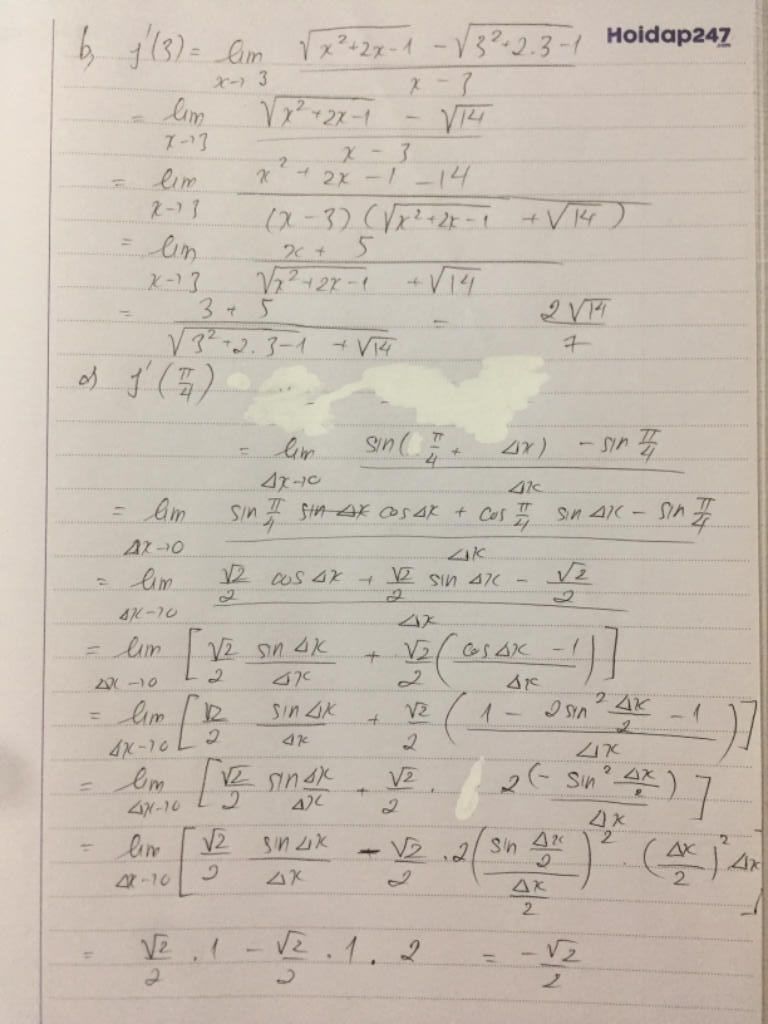 Hoidap247.com
b, f'(3) = lim x→3 (√(x²+2x-1) - √(3²+2.3-1)) / (x - 3)
= lim x→3 (√(x²+2x-1) - √14) / (x - 3)
= lim x→3 (x² + 2x - 1 - 14) / ((x - 3)(√(x²+2x-1) + √14))
= lim x→3 (x + 5) / (√(x²+2x-1) + √14)
= (3 + 5) / (√(3²+2.3-1) + √14) = 2√14 / 7
f'(π/4)
= lim Δx→0 (sin(π/4 + Δx) - sin π/4) / Δx
= lim Δx→0 (sin π/4 sin Δx cos Δx + cos π/4 sin Δx - sin π/4) / Δx
= lim Δx→0 (√2/2 cos Δx + √2/2 sin Δx - √2/2) / Δx
= lim Δx→0 [√2/2 sin Δx / Δx + √2/2 ((cos Δx - 1) / Δx)]
= lim Δx→0 [√2/2 sin Δx / Δx + √2/2 ((1 - 2sin² Δx/2 - 1) / Δx)]
= lim Δx→0 [√2/2 sin Δx / Δx + √2/2 . 2(- sin² Δx/2) / Δx]
= lim Δx→0 [√2/2 sin Δx / Δx - √2/2 . 2(sin Δx/2 / Δx/2)² . (Δx/2)² Δx]
= √2/2 . 1 - √2/2 . 1 . 2 = -√2/2